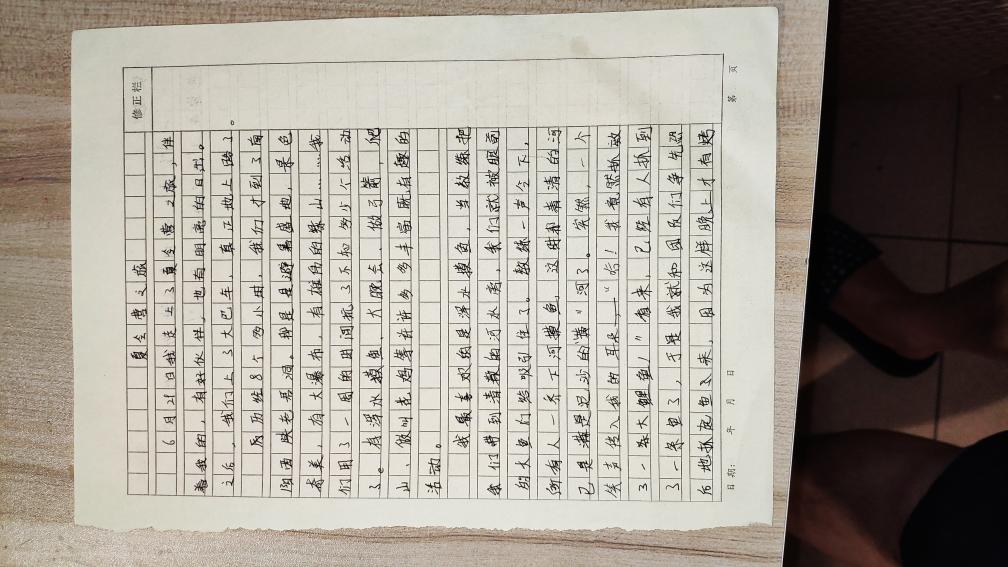 修正栏
夏令营之旅
6月21日我走上了夏令营之旅,伴
着我的,有好伙伴,也有明亮的日出。
之后,我们上了大巴车,真正地上路了。
历经8个多小时,我们才到了
陕老君洞。是避暑盛地,景色
有大瀑布,有雄伟的绿山……我
们用了一周的时间玩了不知多少个活动
了。有浑水摸鱼、大晚会、做弓箭、爬
山、做叫花鸡等许许多多丰富既有趣的
活动。
我最喜欢的是浑水摸鱼,当教练把
我们带到清澈的河水旁,我们就被眼前
的大鱼们给吸引住了。教练一声令下,
所有人一齐下河摸鱼,这时那清清的河
已是满是泥沙的"黄"河了。突然,一个
笑声传入我的耳朵,——"哈!我竟然抓到
了一条大鲤鱼!"看来,已经有人抓到
了一条鱼了,于是我就和团队们争先恐
后地抓起鱼来,因为这样晚上才有烤
日期: 年 月 日
第 页